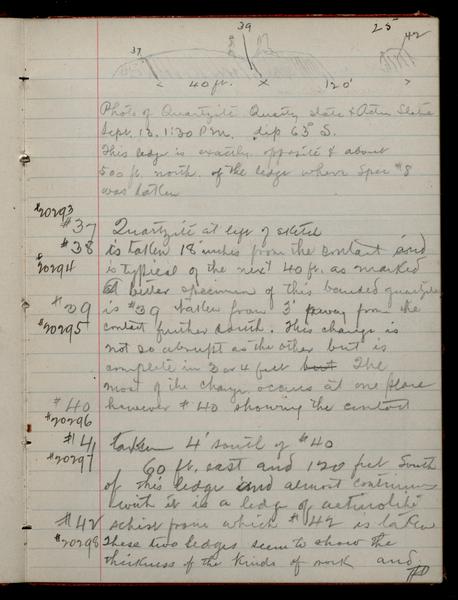 25
39
42
37
< 40 ft. × 120' >
Photo of Quartzite Quartz slate & Actin Slate
Sept. 13. 1:30 P.M. dip 63° S.
This ledge is exactly opposite & about
500 ft. north of the ledge where Spec #8
was taken
#20293
#37 Quartzite at left of sketch
#38 is taken 18 inches from the contact and
#20294 is typical of the next 40 ft. as marked
A better specimen of this banded quartzite
#39 is #39 taken from 3' away from the
#20295 contact further south. This change is
not so abrupt as the other but is
complete in 3 or 4 feet but The
most of the change occurs at one place
#40 however #40 showing the contact
#20296
#41 taken 4' south of #40
#20297
60 ft. east and 120 feet South
of this ledge and almost continuous
with it is a ledge of actinolite
#42 schist from which #42 is taken
#20298 These two ledges seem to show the
thickness of the kinds of rock and